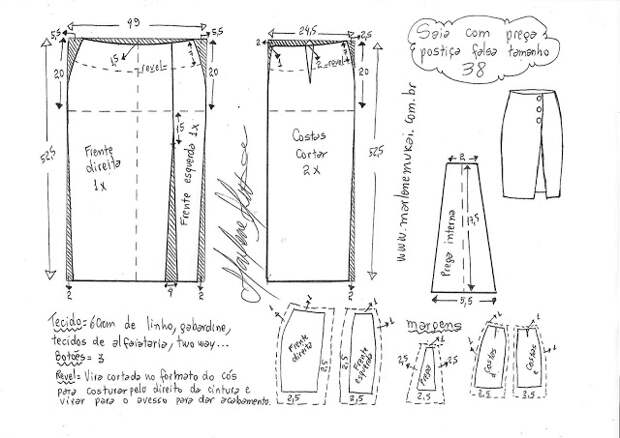 49
5,5
5,5
15
revel
7
20
20
52,5
15
Frente
direita
1x
Frente esquerda 1x
2
4
2
24,5
2,5
2
1
2
revel
7
20
52,5
Costas
Cortar
2x
2
Saia com prega
postiça falsa tamanho
38
www.marlenemukai.com.br
2
17,5
Prega interna
5,5
Tecido= 60cm de linho, gabardine,
tecidos de alfaiataria, two way...
Botões= 3
Revel= Vira cortada no formato do cós
para costurar pelo direito da cintura e
virar para o avesso para dar acabamento.
Frente
direita
2,5
2,5
Frente
esquerda
2,5
2,5
margens
1
Prega
2,5
2,5
Costas
d
2,5
Costas
e
3,5